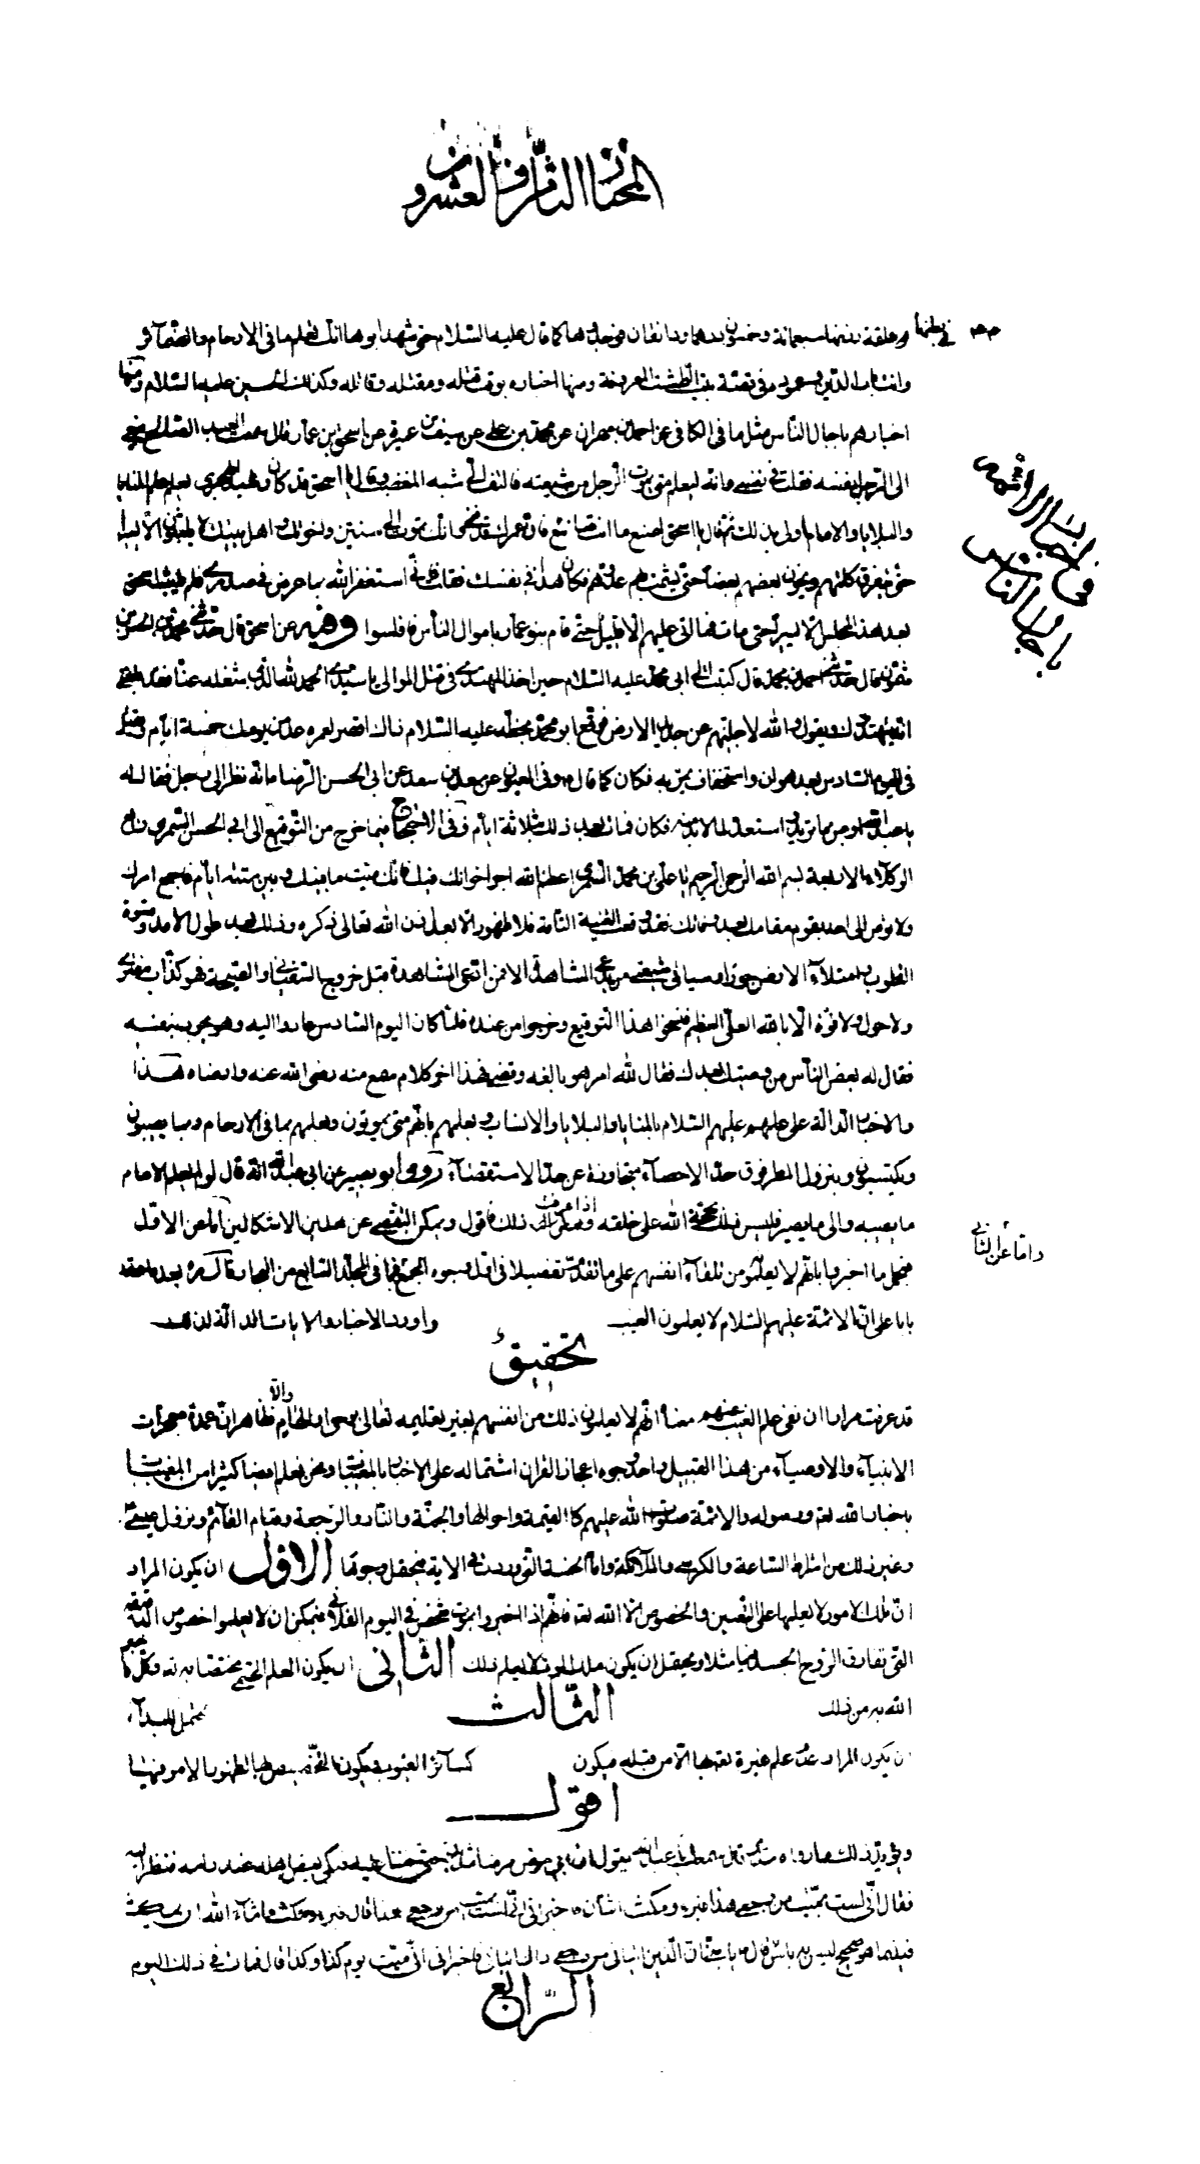 المختار الثامن والعشرون
في بطنها علقة وزنها سبعمائة وخمسون درهما ودانقان فوجدوها كما قال عليه السلام حتى شهد ابوها انك تعلم ما في الارحام والضمائر
وانت باب الدين وعموده في قصة بنت الطشت المعروفة ومنها اخباره بوقت قتله ومقتله وقاتله وكذلك الحسين عليه السلام ومنها
اخبارهم باجال الناس مثل ما في الكافي عن احمد بن مهران عن محمد بن علي عن سيف بن عميرة عن اسحق بن عمار قال سمعت العبد الصالح ينعى
الى الرجل نفسه فقلت في نفسي وانه ليعلم متى يموت الرجل من شيعته فالتفت الي شبه المغضب وقال يا اسحق قد كان رشيد الهجري يعلم علم المنايا
والبلايا والامام اولى بذلك ثم قال يا اسحق اصنع ما انت صانع فان عمرك قد فنى وانك تموت الى سنتين واخوتك واهل بيتك لا يلبثون الا يسيرا
حتى تتفرق كلمتهم ويخون بعضهم بعضا حتى يشمت بهم عدوهم فكان هذا في نفسك فقلت فاني استغفر الله بما عرض في صدري فلم يلبث اسحق
بعد هذا المجلس الا يسيرا حتى مات فما اتى عليهم الا قليل حتى قام بنو عمار باموال الناس فافلسوا وفيه عن اسحق قال حدثني محمد بن الحسن بن
شمون قال حدثني احمد بن محمد قال كتبت الى ابي محمد عليه السلام حين اخذ المهتدي في قتل الموالي يا سيدي الحمد لله الذي شغله عنا فقد بلغني
انه يتهددك ويقول والله لاجلينهم عن جديد الارض فوقع ابو محمد بخطه عليه السلام ذاك اقصر لعمره عد من يومك خمسة ايام ويقتل
في اليوم السادس بعد هوان واستخفاف يمر به فكان كما قال وفي العيون عن سعد بن سعد عن ابي الحسن الرضا انه نظر الى رجل فقال له
يا عبد الله اوص بما تريد واستعد لما لا بد منه فكان فمات بعد ذلك بثلاثة ايام وفي الاحتجاج فيما خرج من التوقيع الى ابي الحسن السمري رابع
الوكلاء الاربعة بسم الله الرحمن الرحيم يا علي بن محمد السمري اعظم الله اجر اخوانك فيك فانك ميت ما بينك وبين ستة ايام فاجمع امرك
ولا توص الى احد يقوم مقامك بعد وفاتك فقد وقعت الغيبة التامة فلا ظهور الا بعد اذن الله تعالى ذكره وذلك بعد طول الامد وقسوة
القلوب وامتلاء الارض جورا وسياتي شيعتي من يدعي المشاهدة الا فمن ادعى المشاهدة قبل خروج السفياني والصيحة فهو كذاب مفتري
ولا حول ولا قوة الا بالله العلي العظيم فنسخوا هذا التوقيع وخرجوا من عنده فلما كان اليوم السادس عادوا اليه وهو يجود بنفسه
فقال له بعض الناس من وصيك بعدك فقال لله امر هو بالغه وقضى فهذا اخر كلام سمع منه رضى الله عنه وارضاه هذا
والاخبار الدالة على علمهم عليهم السلام بالمنايا والبلايا والانساب وبعلمهم بانهم متى يموتون وبعلمهم بما في الارحام وبما يصيبون
ويكتسبون وبنزول المطر فوق حد الاحصاء متجاوزة عن حد الاستقصاء روى ابو بصير عن ابي عبد الله انه قال لو لم يعلم الامام
ما يصيبه والى ما يصير فليس ذلك بحجة الله على خلقه اذا عرفت ذلك فاقول ويمكن التفصي عن هذين الاشكالين اما عن الاول
فبحمل ما اخبروا بانهم لا يعلمون من تلقاء انفسهم على ما تقدم تفصيلا في اول وجوه الجمع قال في المجلد السابع من البحار قال بعد ما عقد
بابا على ان الائمة عليهم السلام لا يعلمون الغيب واورد الاخبار والايات الدالة لذلك
تحقيق
قد عرفت مرارا ان نفى علم الغيب عنهم معناه انهم لا يعلمون ذلك من انفسهم بغير تعليمه تعالى بوحى او الهام والا فظاهر ان عمدة معجزات
الانبياء والاوصياء من هذا القبيل واحد وجوه اعجاز القران اشتماله على الاخبار بالمغيبات ونحن نعلم ايضا كثيرا من المغيبات
باخبار الله تعه ورسوله والائمة صلوات الله عليهم كالقيمة واحوالها والجنة والنار والرجعة وقيام القائم ونزول عيسى
وغير ذلك من اشراط الساعة والكرسي والملائكة واما الخمسة التي وردت في الاية فيحتمل وجوها الاول ان يكون المراد
ان تلك الامور لا يعلمها على التعيين والخصوص الا الله تعه فانهم اذا اخبروا بموت شخص في اليوم الفلاني فيمكن ان لا يعلموا خصوص الدقيقة
التي تفارق الروح الجسد فيها مثلا ويحتمل ان يكون ملك الموت لا يعلم ذلك الثاني ان يكون العلم الحتمي مختصا به ته وكل ما اخبر
الله به من ذلك محتمل للبداء الثالث
ان يكون المراد عدم علم غيره تعه بها الا من قبله فيكون كسائر الغيوب ويكون التخصيص بها لظهور الامر فيها
اقول
ويؤيد ذلك ما رواه سمعت ابا عبد الله يقول ان ابي مرض مرضا شديدا حتى خفنا عليه فبكى بعض اهله عند راسه فنظر اليه
فقال اني لست بميت من وجعي هذا فبرء ومكث ما شاء الله ان يمكث
فبينما هو صحيح ليس به باس قال يا بني ان الذين اتياني من وجعي ذلك اتياني فاخبراني اني ميت يوم كذا وكذا قال فمات في ذلك اليوم
الرابع
في اخبار الائمة
باجال الناس
واما عن الثاني